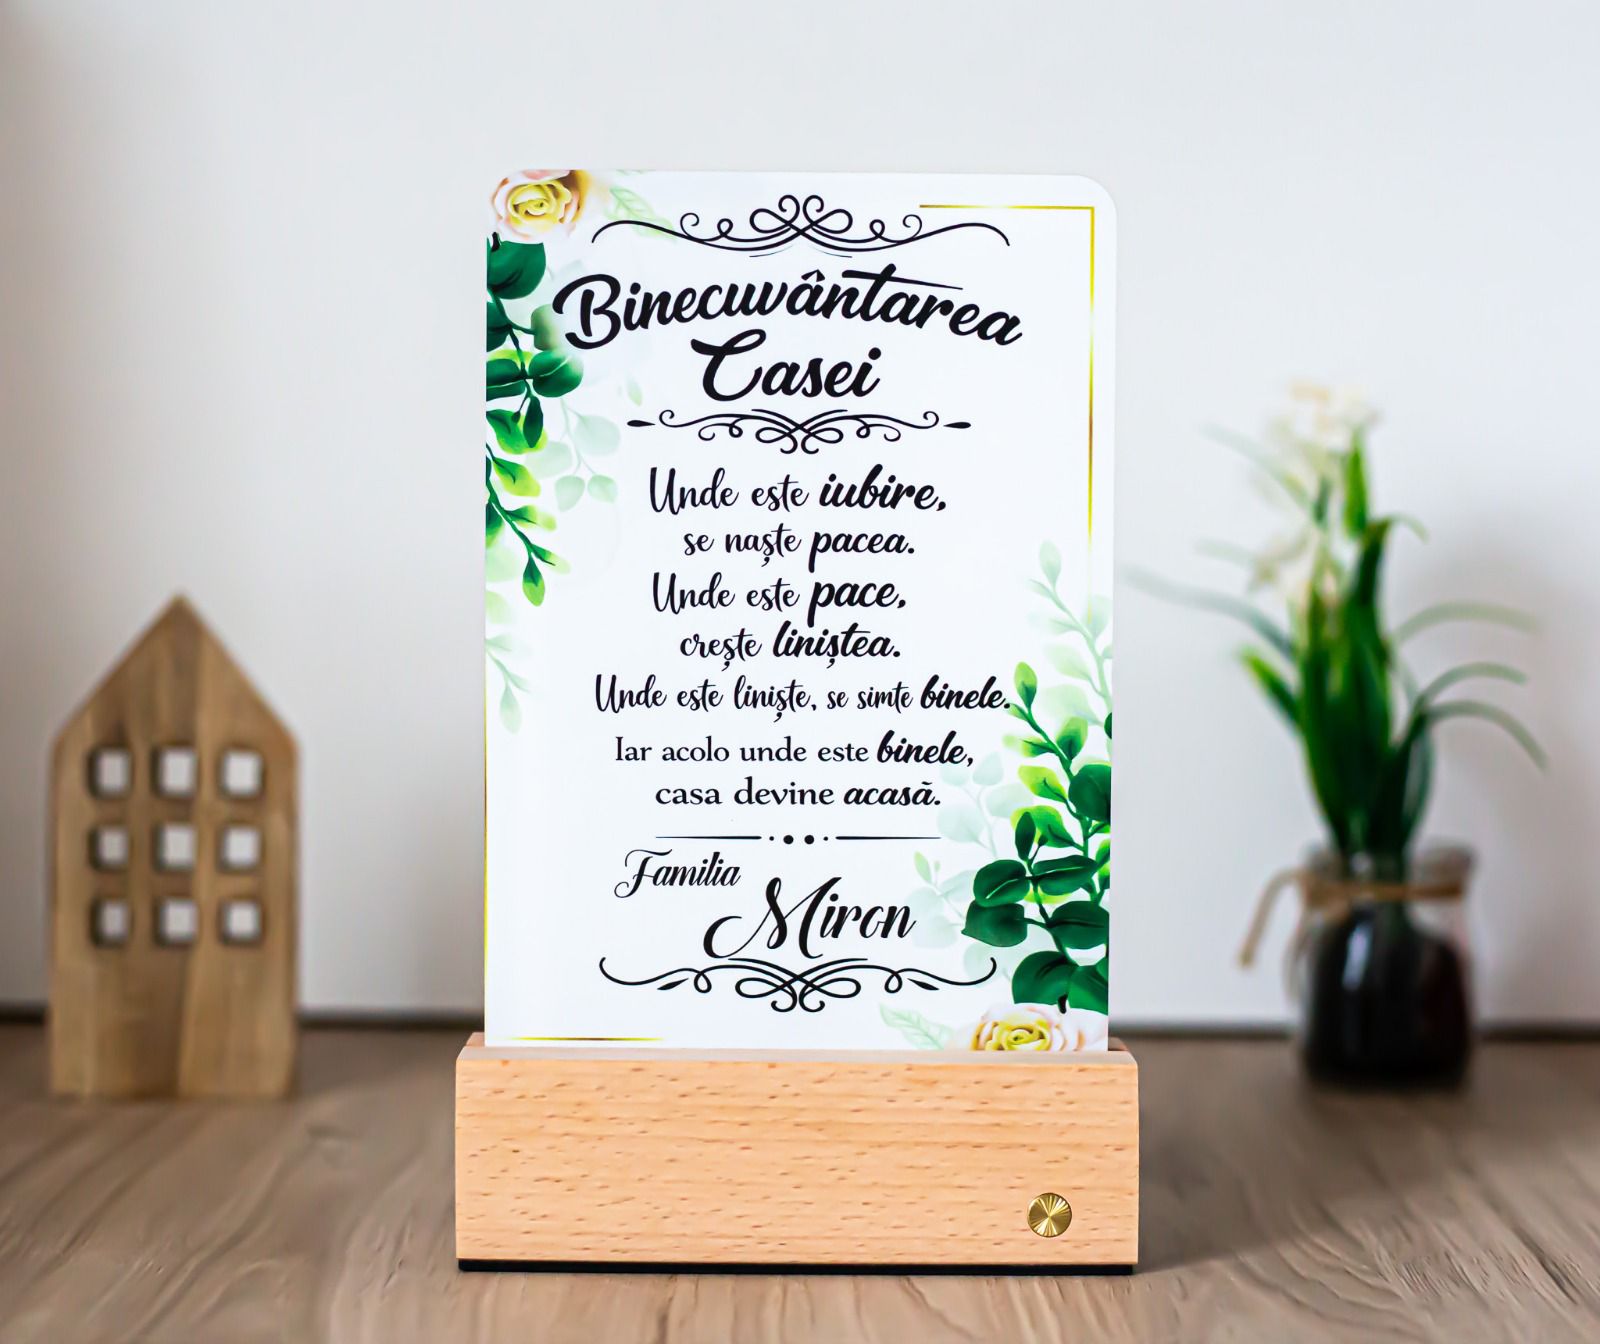 Binecuvântarea
Casei
Unde este iubire,
se naște pacea.
Unde este pace,
crește liniștea.
Unde este liniște, se simte binele.
Iar acolo unde este binele,
casa devine acasă.
Familia
Miron